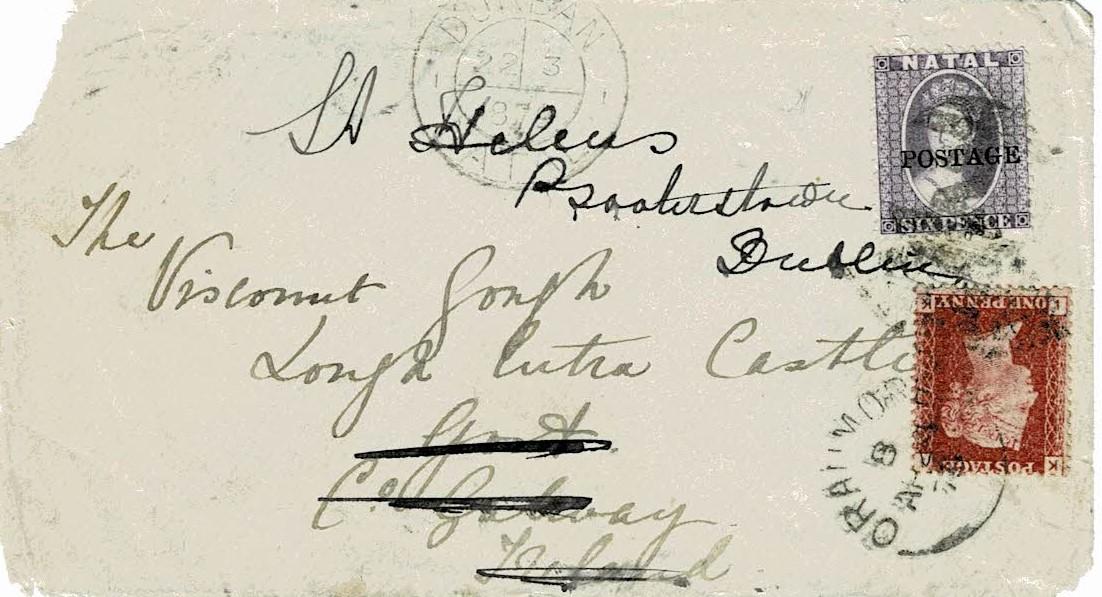 DURBAN
22 3
NATAL
POSTAGE
SIXPENCE
St Helens
Booterstown
Dublin
The
Viscount Gough
Lough Cutra Castle
Gort
Co. Galway
Ireland
ONE PENNY
POSTAGE
K
ORANMORE
B
AP